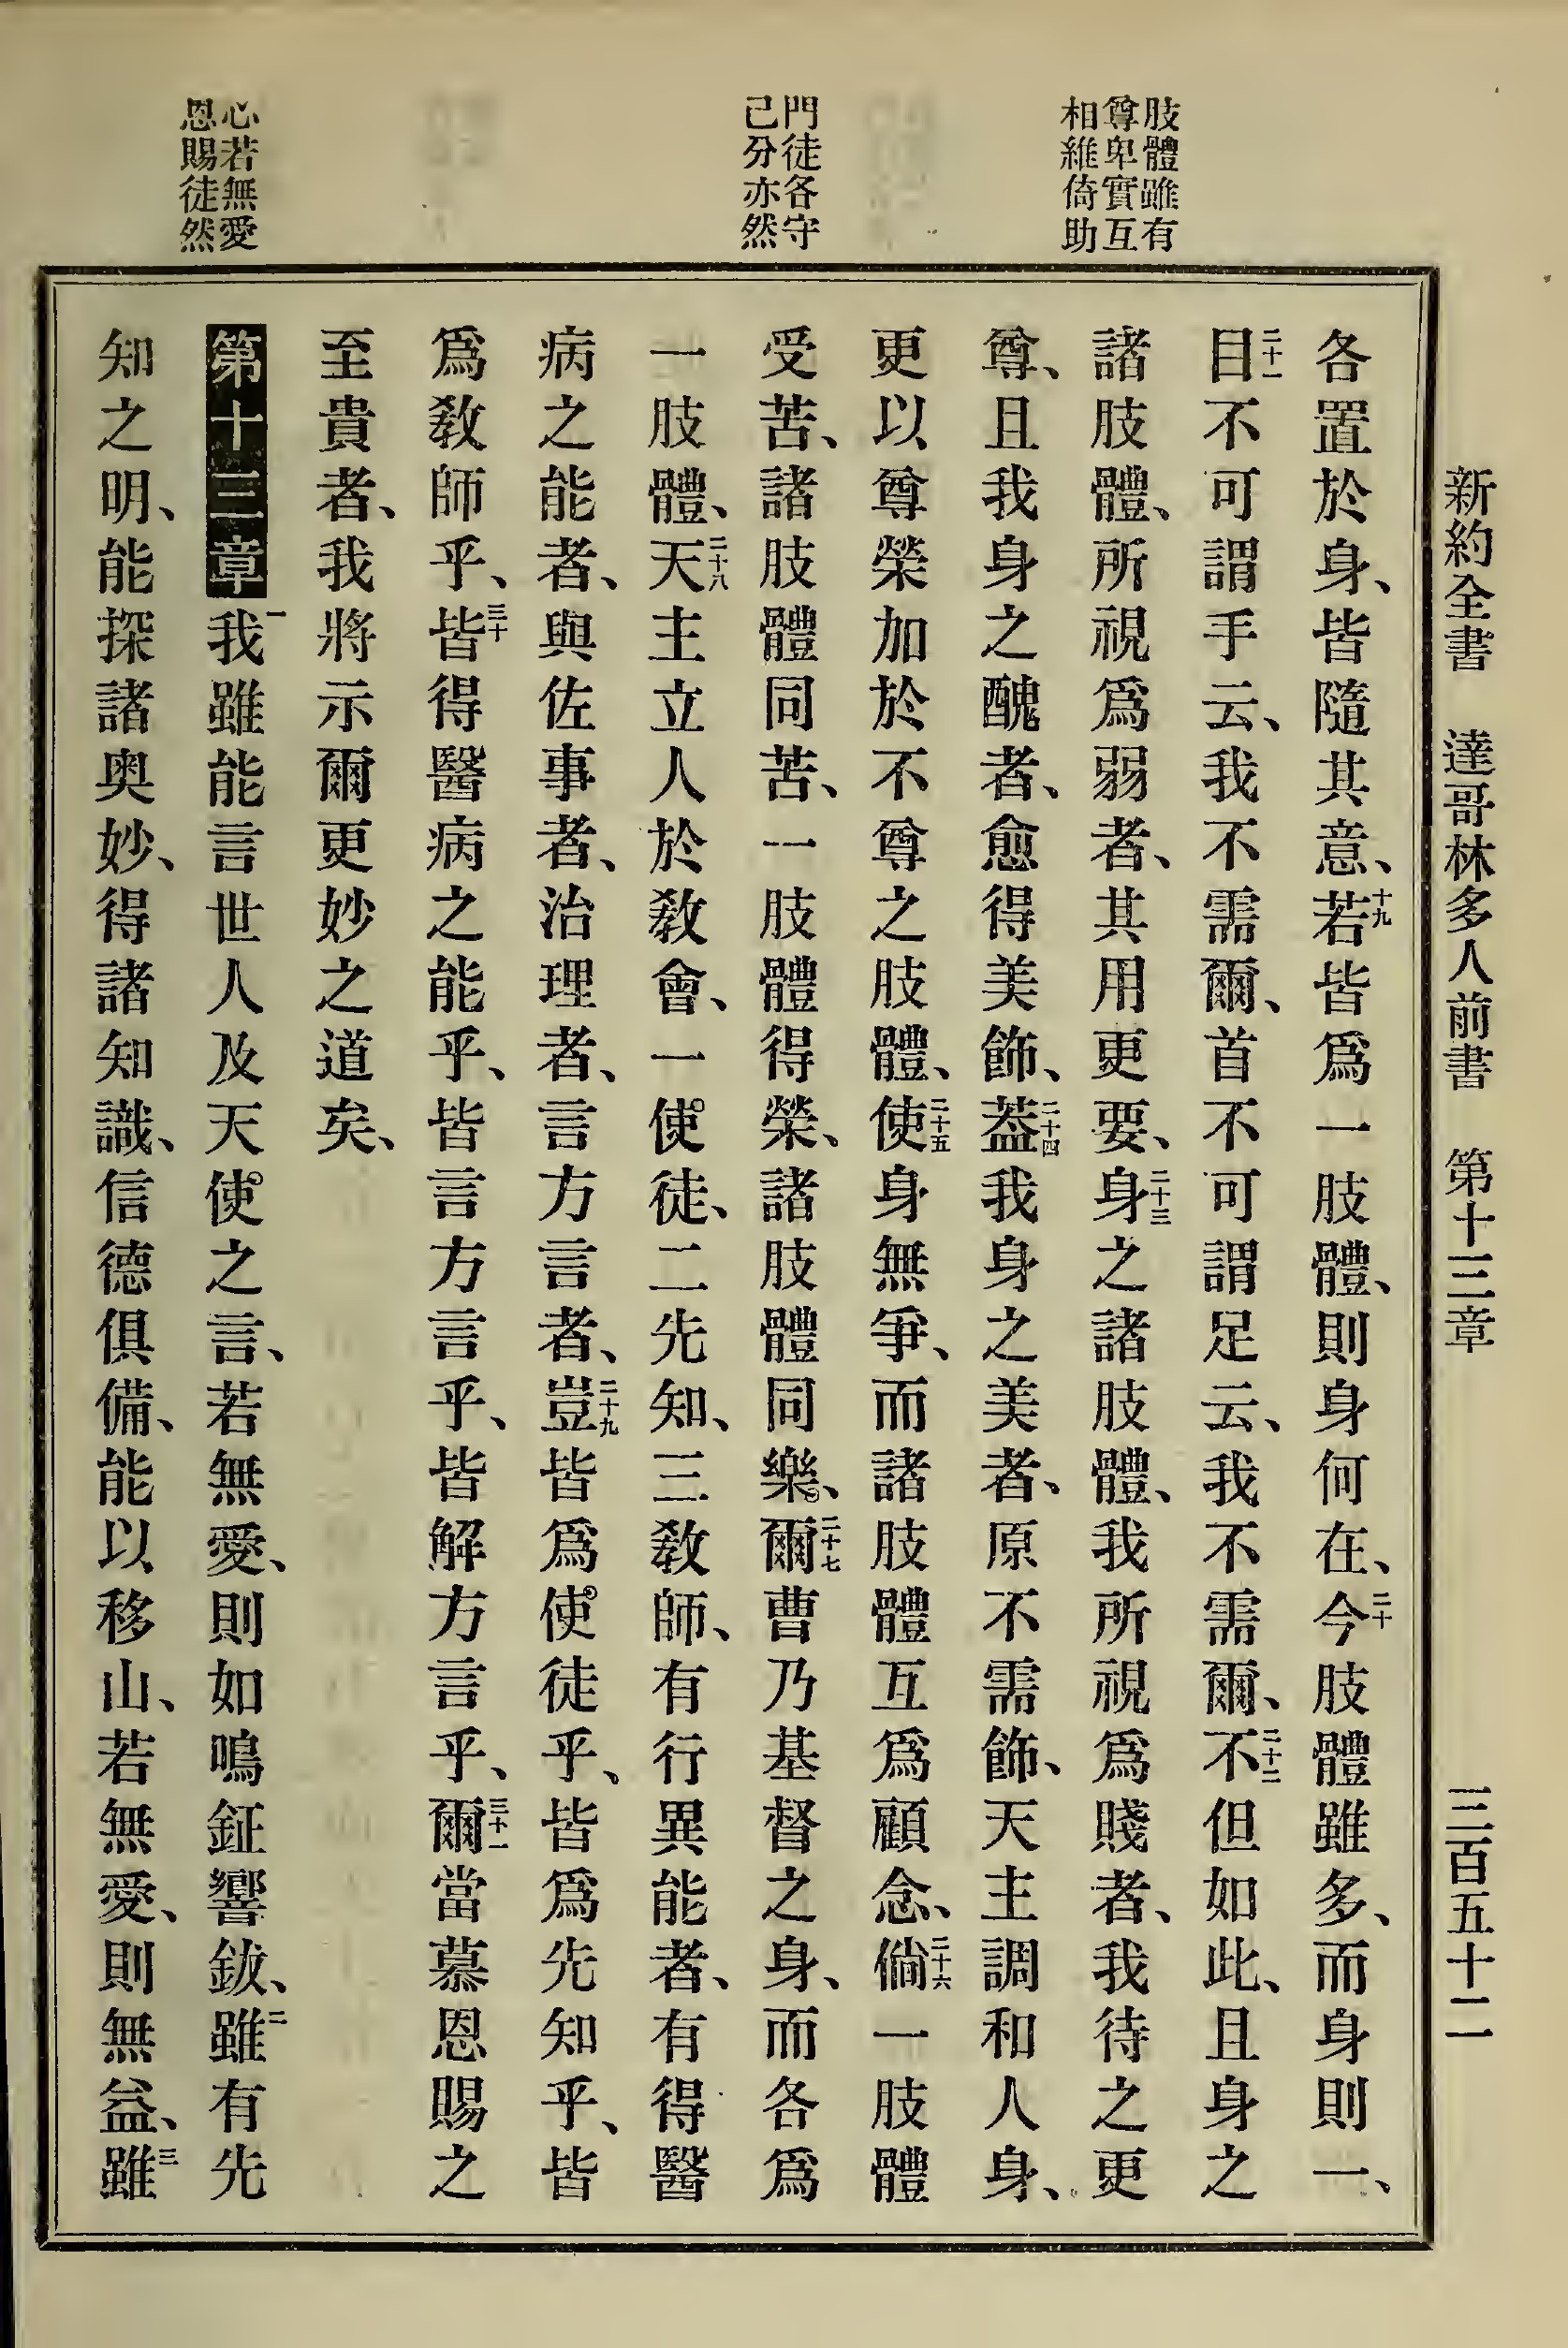 新約全書 達哥林多人前書 第十三章 三百五十二
肢體雖有
尊卑實互
相維倚助
門徒各守
己分亦然
心若無愛
恩賜徒然
各置於身、皆隨其意、十九若皆爲一肢體、則身何在、二十今肢體雖多、而身則一、
二十一目不可謂手云、我不需爾、首不可謂足云、我不需爾、二十二不但如此、且身之
諸肢體、所視爲弱者、其用更要、二十三身之諸肢體、我所視爲賤者、我待之更
尊、且我身之醜者、愈得美飾、二十四蓋我身之美者、原不需飾、天主調和人身、
更以尊榮加於不尊之肢體、二十五使身無爭、而諸肢體互爲顧念、二十六倘一肢體
受苦、諸肢體同苦、一肢體得榮、諸肢體同樂。、二十七爾曹乃基督之身、而各爲
一肢體、二十八天主立人於教會、一使徒、二先知、三教師、有行異能者、有得醫
病之能者、與佐事者、治理者、言方言者、二十九豈皆爲使徒乎、皆爲先知乎、皆
爲教師乎、三十皆得醫病之能乎、皆言方言乎、皆解方言乎、三十一爾當慕恩賜之
至貴者、我將示爾更妙之道矣、
第十三章 一我雖能言世人及天使之言、若無愛、則如鳴鉦響鈸、二雖有先
知之明、能探諸奧妙、得諸知識、信德俱備、能以移山、若無愛、則無益、三雖